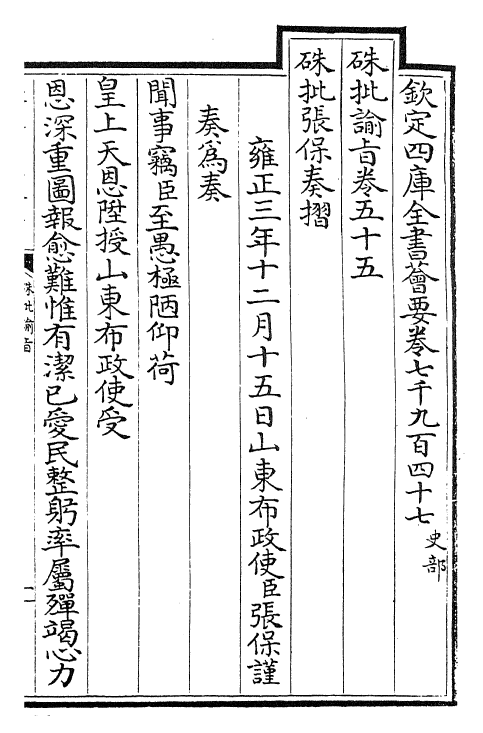 欽定四庫全書薈要卷七千九百四十七 史部
硃批諭旨卷五十五
硃批張保奏摺
雍正三年十二月十五日山東布政使臣張保謹
奏爲奏
聞事竊臣至愚極陋仰荷
皇上天恩陞授山東布政使受
恩深重圖報愈難惟有潔已愛民整躬率屬殫竭心力
硃批諭旨
一